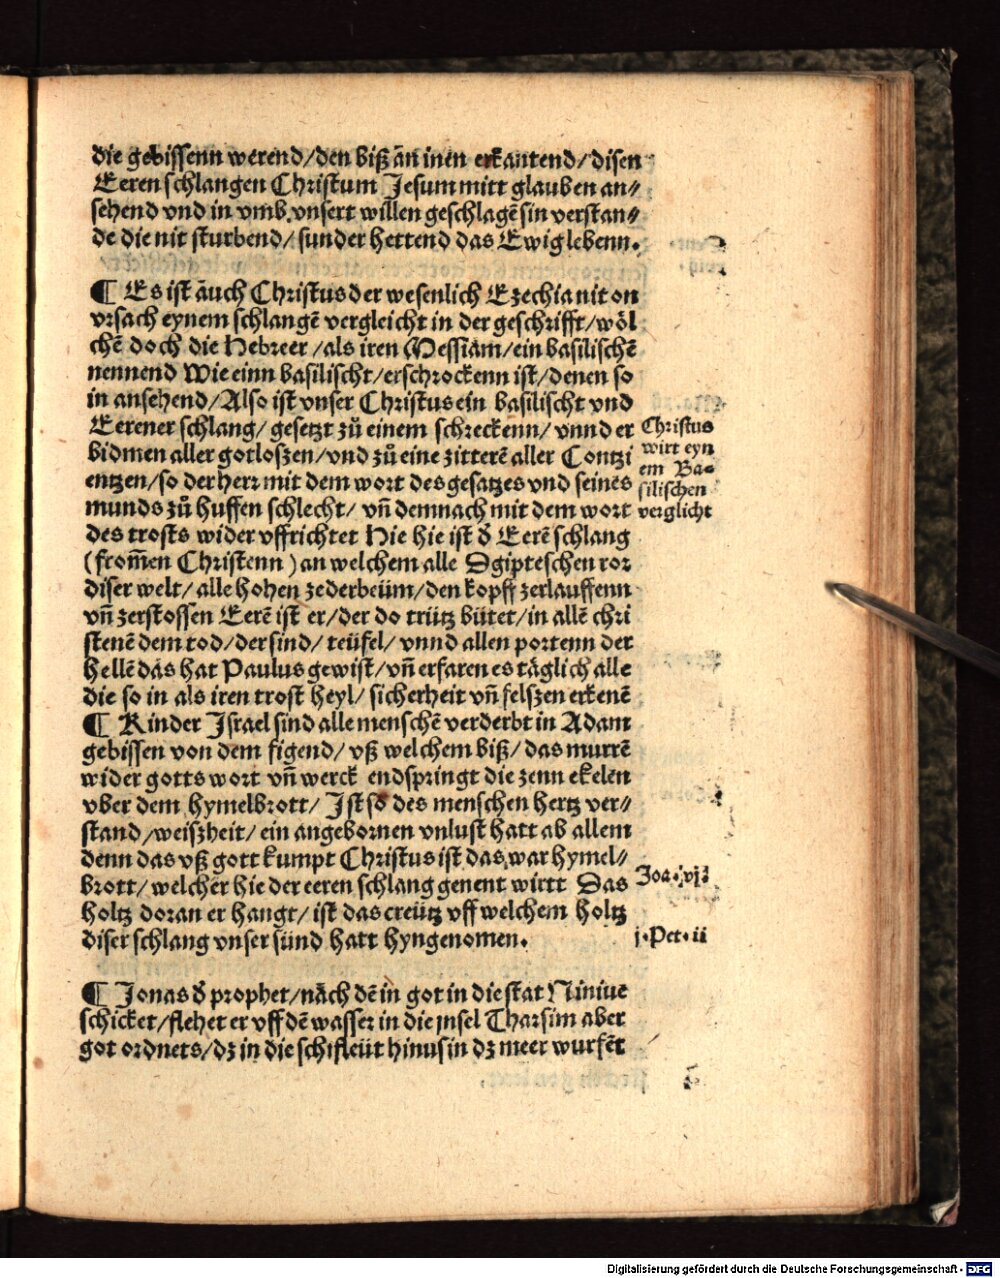 die gebissenn werend/den biß an inen erkantend/disen
Eeren schlangen Christum Jesum mitt glauben an⸗
sehend vnd in vmb vnsert willen geschlagē sin verstan⸗
de die nit sturbend/sunder hettend das Ewig lebenn.
¶ Es ist auch Christus der wesenlich Ezechia nit on
vrsach eynem schlangē vergleicht in der geschrifft/wöl
chē doch die Hebreer/als iren Messiam/ein basilischē
nennend Wie einn basilischt/erschrockenn ist/denen so
in ansehend/Also ist vnser Christus ein basilischt vnd
Eerener schlang/gesetzt zů einem schreckenn/vnnd er
bidmen aller gotloszen/vnd zů eine zitterē aller Contzi
entzen/so der herr mit dem wort des gesatzes vnd seines
munds zů huffen schlecht/vn̄ demnach mit dem wort
des trosts wider vffrichtet Hie hie ist d̕ Eerē schlang
(from̄en Christenn) an welchem alle Egipteschen ror
diser welt/alle hohen zederbeüm/den kopff zerlauffenn
vn̄ zerstossen Eerē ist er/der do trütz bütet/in allē chri
stenē dem tod/der sind/teüfel/vnnd allen portenn der
hellē das hat Paulus gewist/vn̄ erfaren es täglich alle
die so in als iren trost heyl/sicherheit vn̄ felszen erkenē
¶ Kinder Israel sind alle menschē verderbt in Adam
gebissen von dem figend/vß welchem biß/das murrē
wider gotts wort vn̄ werck endspringt die zenn ekelen
vber dem hymelbrott/Ist so des menschen hertz ver⸗
stand/weiszheit/ein angebornen vnlust hatt ab allem
denn das vß gott kumpt Christus ist das war hymel⸗
brott/welcher hie der eeren schlang genent wirtt Das
holtz doran er hangt/ist das creütz vff welchem holtz
diser schlang vnser sünd hatt hyngenomen.
¶ Jonas d̕ prophet/nåch dē in got in die stat Niniue
schicket/flehet er vff dē wasser in die insel Tharsim aber
got ordnets/dz in die schifleüt hinus in dz meer wurfēt
Christus
wirt eyn
em Ba⸗
silischen
verglicht
Joa.vj.
j.Pet.ii
Digitalisierung gefördert durch die Deutsche Forschungsgemeinschaft - DFG